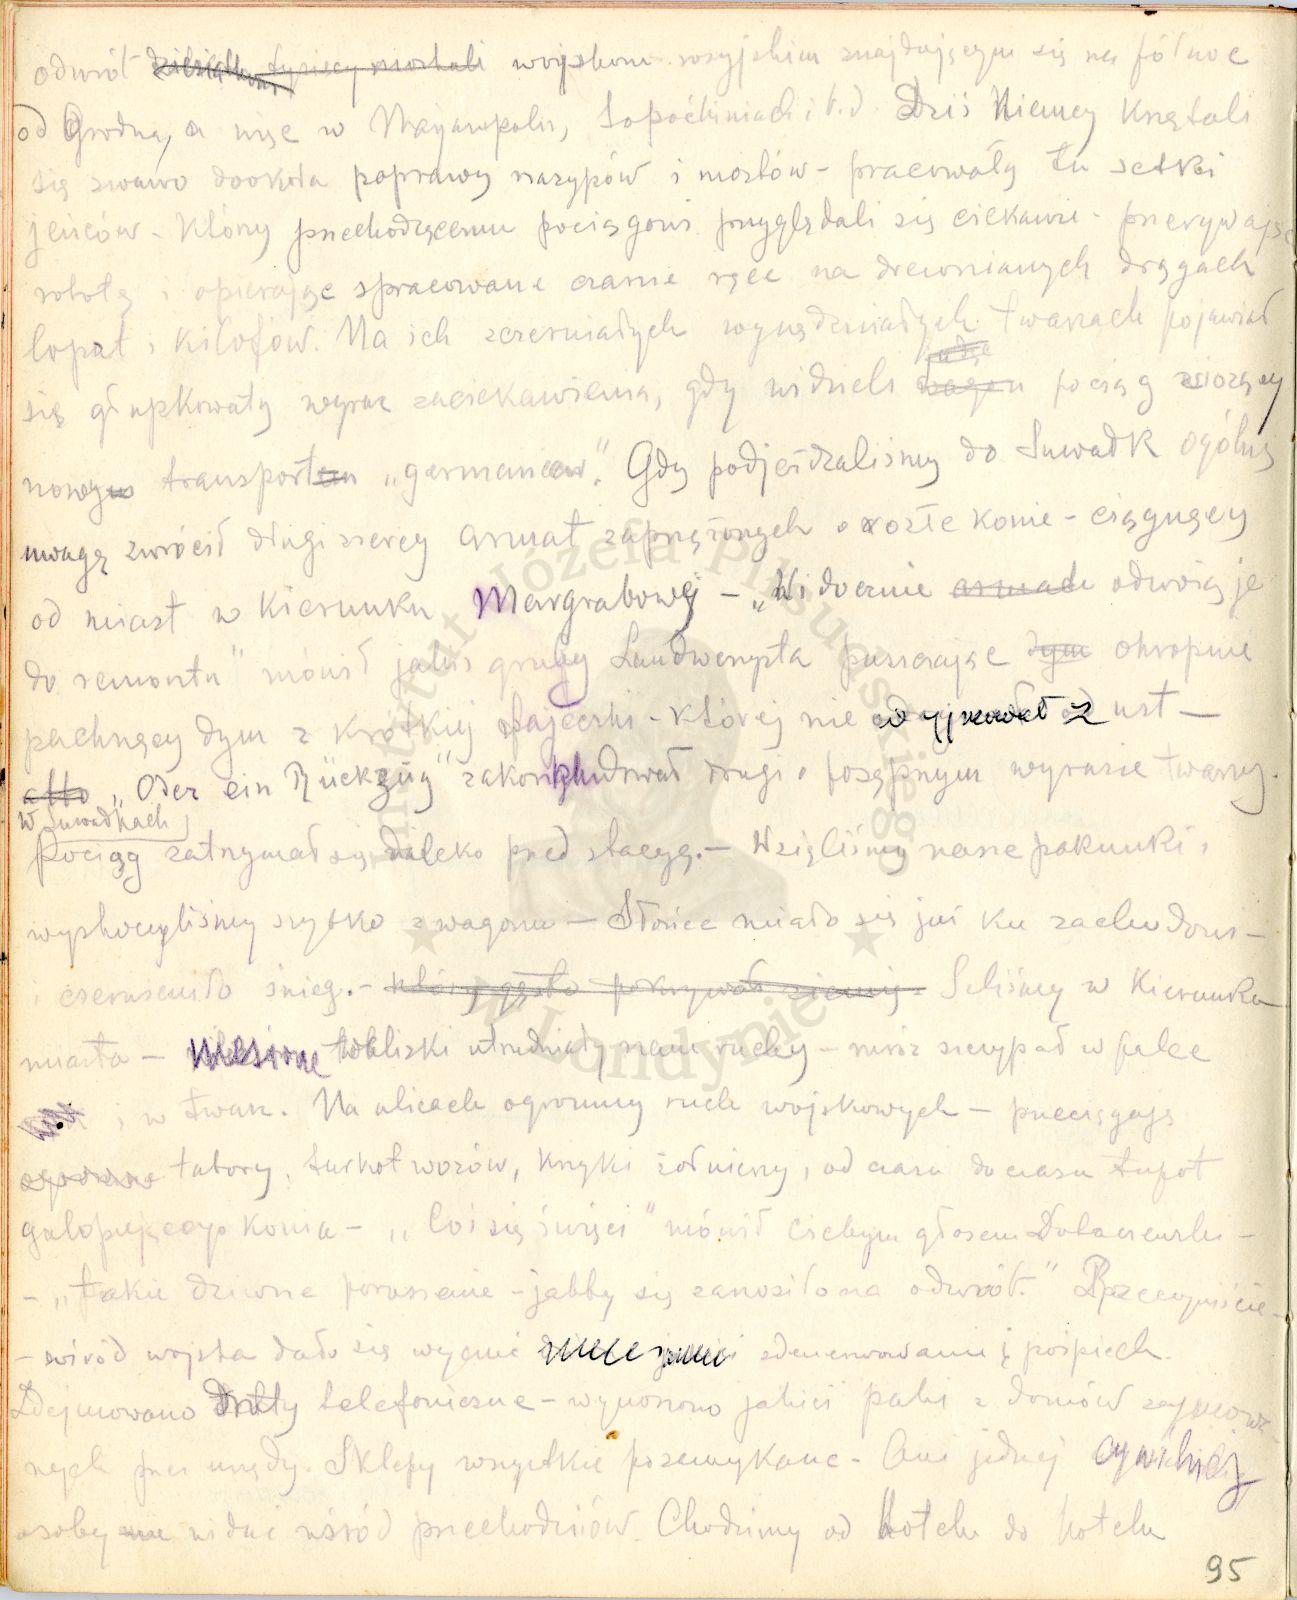 odwrót dziesiątkom tysięcy moskali wojskom rosyjskim znajdującym się na północ
od Grodna, a więc w Maryampolu, Sopoćkiniach i t.d. Dziś Niemcy krzątali
się żwawo dookoła poprawy nasypów i mostów - pracowały tu setki
jeńców - którzy przechodzącemu pociągowi przyglądali się ciekawie - przerywając
robotę i opierając spracowane czarne ręce na drewnianych drągach
łopat i kilofów. Na ich sczerniałych wynędzniałych twarzach pojawiał
się głupkowaty wyraz zaciekawienia, gdy widzieli pociąg wiozący
nowy transport „germancow". Gdy podjeżdżaliśmy do Suwałk ogólną
uwagę zwrócił długi szereg armat zaprzężonych w rosłe konie - ciągnący
od miast w kierunku Margrabowej - „Widocznie armate odwożą je
do remontu" mówił jakiś gruby Landwerzysta puszczając dym okropnie
pachnący dym z krótkiej fajeczki - której nie wyjmował z ust -
albo „Oder ein Rückzug" zakonkludował drugi o posępnym wyrazie twarzy.
W Suwałkach
Pociąg zatrzymał się daleko przed stacyą. - Wzięliśmy nasze pakunki i
wyskoczyliśmy szybko z wagonu - Słońce miało się już ku zachodowi -
i czerwieniło śnieg. - który gęsto pokrywał ziemię - Szliśmy w kierunku
miasta - niesione tobliski utrudniały nam ruchy - mróz szczypał w palce
i w twarz. Na ulicach ogromny ruch wojskowych - przeciągają
ogromne tabory, turkot wozów, krzyki żołnierzy, od czasu do czasu tupot
galopującego konia - „Coś się święci" mówił cichym głosem Dobaczewski -
- „takie dziwne poruszenie - jakby się zanosiło na odwrót." Rzeczywiście -
- wśród wojska dało się wyczuć zdenerwowanie i pośpiech.
Zdejmowano druty telefoniczne - wynoszono jakieś paki z domów zajmowa-
nych przez urzędy. Sklepy wszystkie pozamykane - Ani jednej cywilnej
osoby nie widać wśród przechodniów. Chodzimy od hotelu do hotelu
95
Instytut Józefa Piłsudskiego ★ w Londynie ★